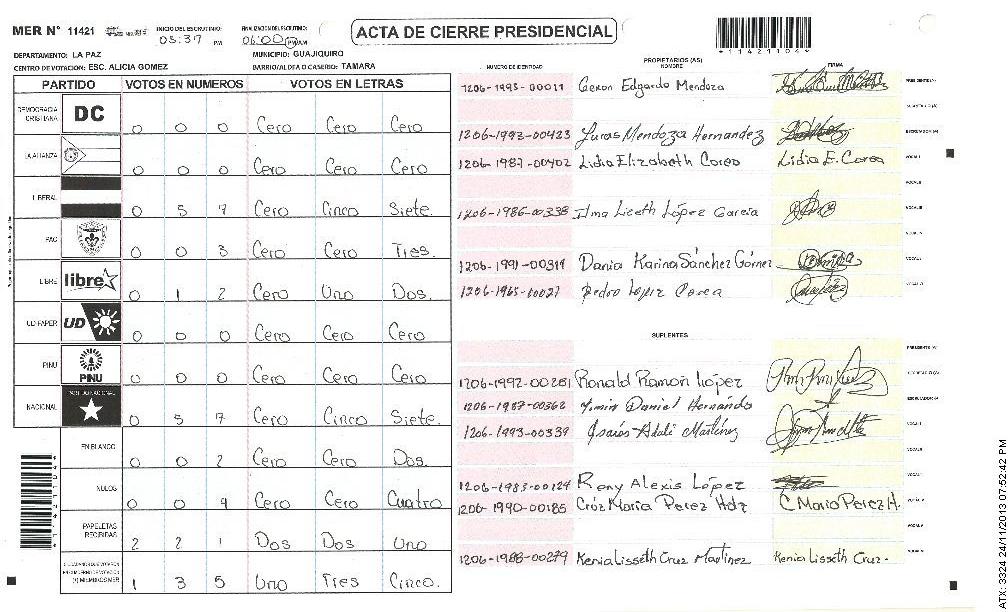 MER N° 11421 INICIO DEL ESCRUTINIO: 05:37 PM FINALIZACION DEL ESCRUTINIO: 06:00 PM AM
ACTA DE CIERRE PRESIDENCIAL
*11421104*
DEPARTAMENTO: LA PAZ MUNICIPIO: GUAJIQUIRO
CENTRO DE VOTACION: ESC. ALICIA GOMEZ BARRIO/ALDEA O CASERIO: TAMARA
PARTIDO VOTOS EN NUMEROS VOTOS EN LETRAS
DEMOCRACIA CRISTIANA DC 0 0 0 Cero Cero Cero
LA ALIANZA 0 0 0 Cero Cero Cero
LIBERAL 0 5 7 Cero Cinco Siete.
PAC 0 0 3 Cero Cero Tres.
LIBRE libre 0 1 2 Cero Uno Dos.
UD-FAPER UD 0 0 0 Cero Cero Cero
PINU PINU 0 0 0 Cero Cero Cero
NACIONAL PARTIDO NACIONAL 0 5 7 Cero Cinco Siete.
EN BLANCO 0 0 2 Cero Cero Dos.
NULOS 0 0 4 Cero Cero Cuatro
PAPELETAS RECIBIDAS 2 2 1 Dos Dos Uno
(+) MIEMBROS MER 1 3 5 Uno Tres Cinco.
PROPIETARIOS (AS)
NUMERO DE IDENTIDAD NOMBRE FIRMA
1206-1993-00011 Geron Edgardo Mendoza PRESIDENTE(A)
1206-1992-00423 Lucas Mendoza Hernandez
1206-1987-00402 Lidia Elizabeth Corea Lidia E. Corea
1206-1986-00338 Ilma Liceth López García
1206-1991-00319 Dania Karina Sánchez Gómez
1206-1965-00027 Pedro Lopez Corea
SUPLENTES
1206-1992-00281 Ronald Ramon López
1206-1987-00362 Yimin Daniel Hernándo
1206-1993-00339 Isaías Adali Martínez
1206-1983-00124 Reny Alexis López
1206-1990-00185 Crúz Maria Perez Hdz C Maria Perez H.
1206-1988-00279 Kenia Lisseth Cruz Martinez Kenia Lisseth Cruz.
ATX: 3324 24/11/2013 07:52:42 PM